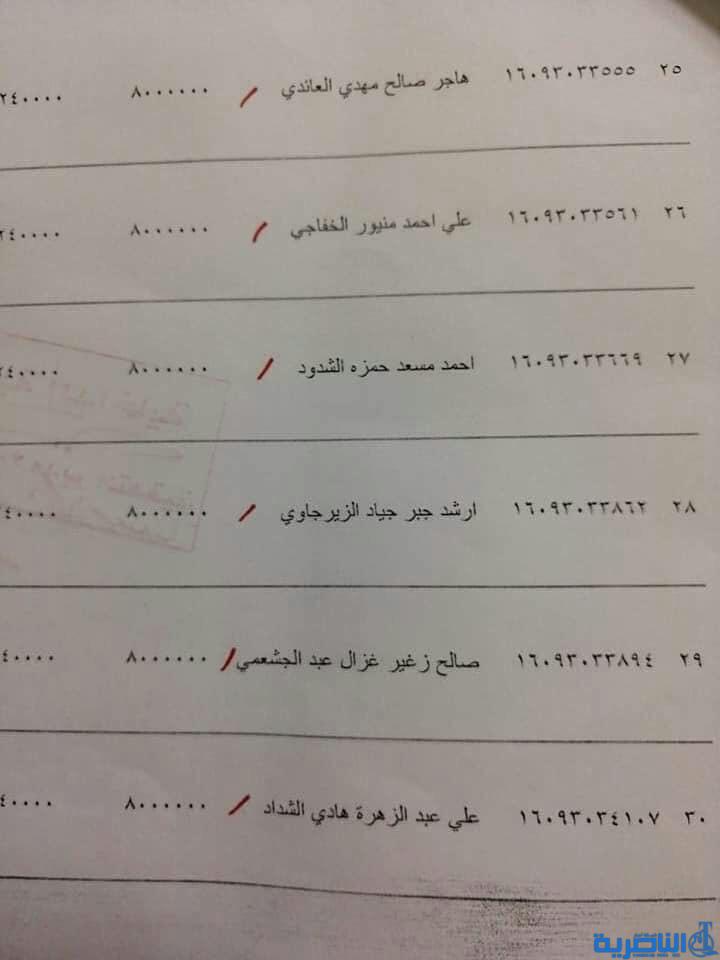 ٢٥ ١٦٠٩٣٠٣٣٥٥٥ هاجر صالح مهدي العائدي / ٨٠٠٠٠٠٠ ٢٤٠٠٠٠
٢٦ ١٦٠٩٣٠٣٣٥٦١ علي احمد منيور الخفاجي / ٨٠٠٠٠٠٠ ٢٤٠٠٠٠
٢٧ ١٦٠٩٣٠٣٣٦٦٩ احمد مسعد حمزه الشدود / ٨٠٠٠٠٠٠ ٢٤٠٠٠٠
٢٨ ١٦٠٩٣٠٣٣٨٦٢ ارشد جبر جياد الزيرجاوي / ٨٠٠٠٠٠٠ ٤٠٠٠٠
٢٩ ١٦٠٩٣٠٣٣٨٩٤ صالح زغير غزال عبد الجشعمي / ٨٠٠٠٠٠٠ ٤٠٠٠٠
٣٠ ١٦٠٩٣٠٣٤١٠٧ علي عبد الزهرة هادي الشداد / ٨٠٠٠٠٠٠ ٤٠٠٠٠
الناصرية